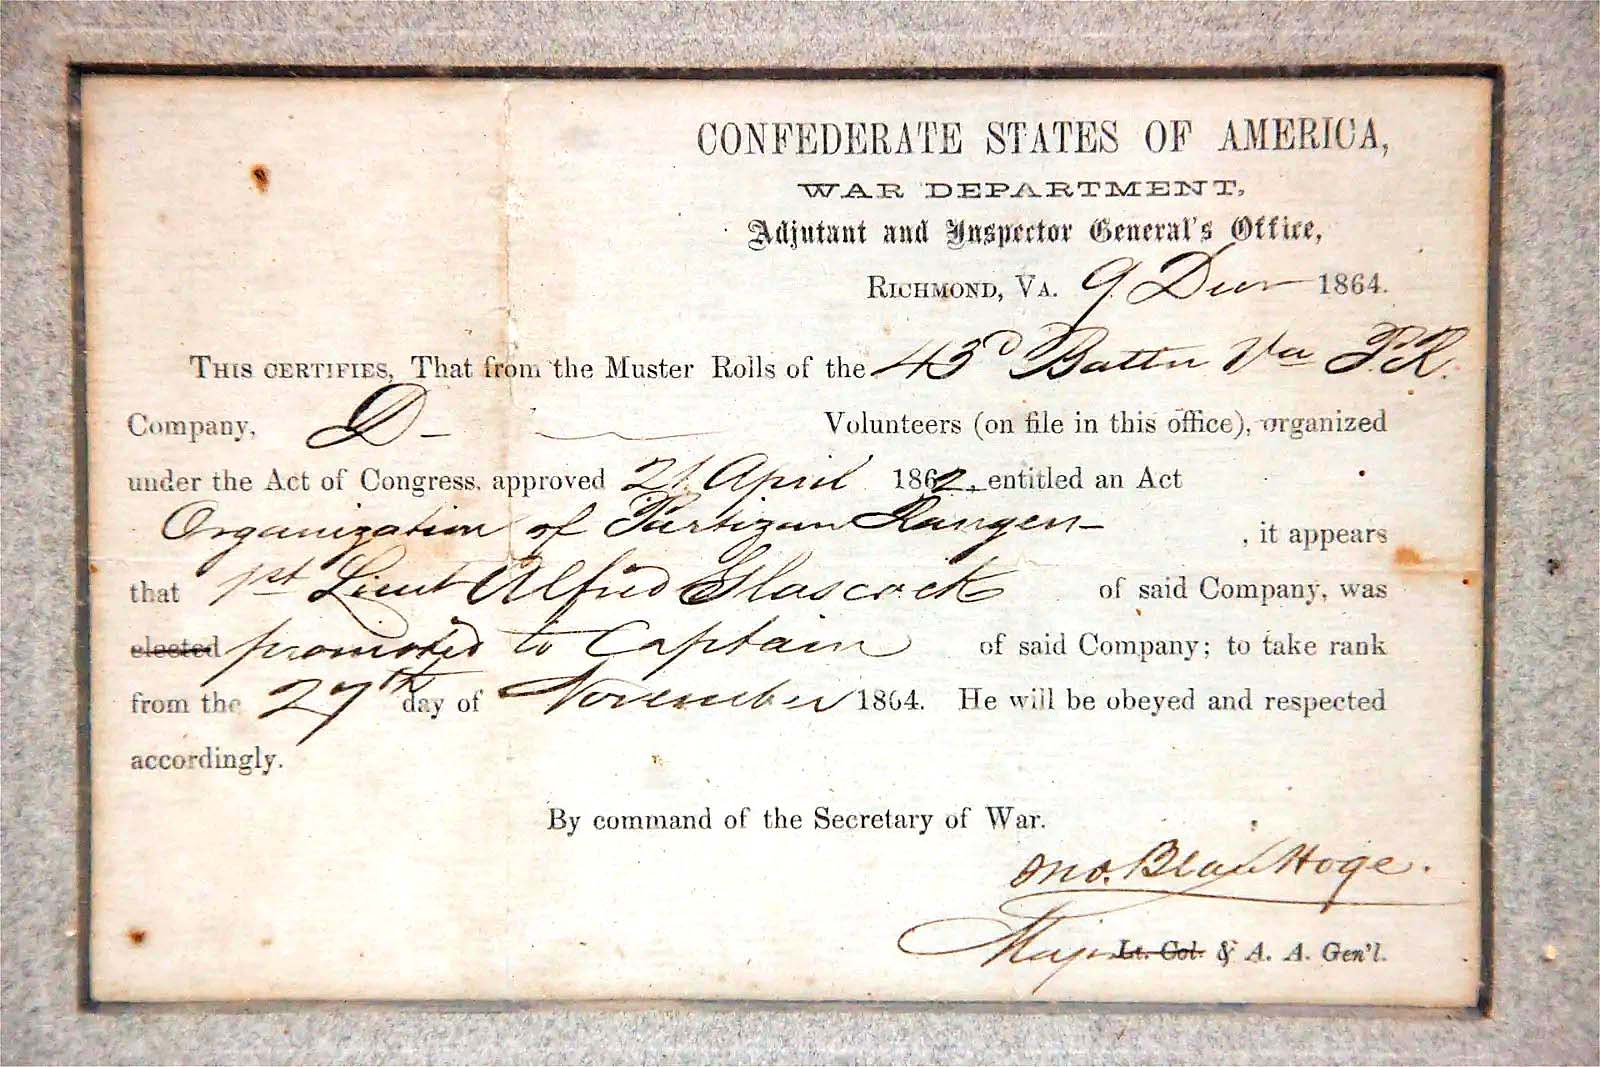 CONFEDERATE STATES OF AMERICA,
WAR DEPARTMENT,
Adjutant and Inspector General's Office,
RICHMOND, VA. 9 Decr 1864.
THIS CERTIFIES, That from the Muster Rolls of the 43d Battn Va P.R.
Company, D - Volunteers (on file in this office), organized
under the Act of Congress, approved 21 April 1862, entitled an Act
Organization of Partizan Rangers , it appears
that 1st Lieut Alfred Glascock of said Company, was
elected promoted to Captain of said Company; to take rank
from the 27th day of November 1864. He will be obeyed and respected
accordingly.
By command of the Secretary of War.
Jno. Blair Hoge.
Major Lt. Col. & A. A. Gen'l.